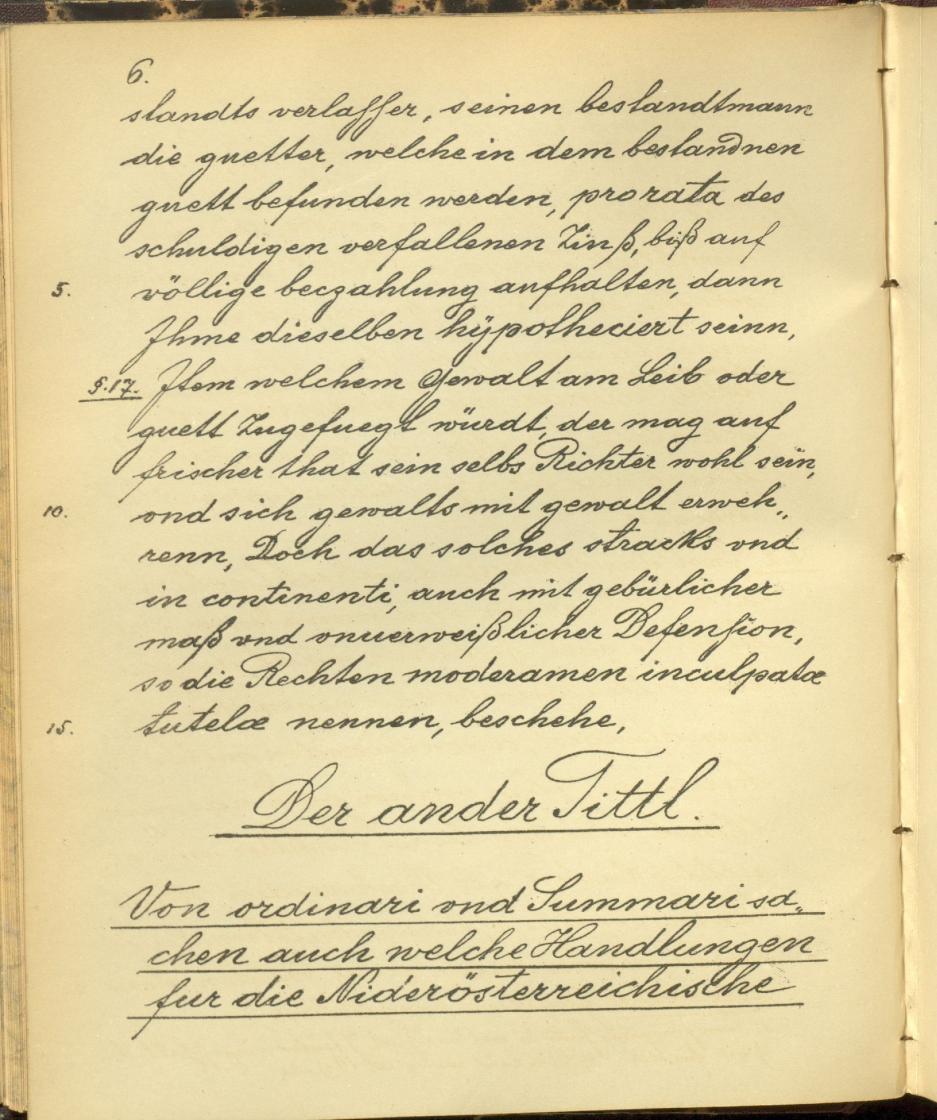 6.
standts verlasser, seinen bestandtmann
die guetter, welche in dem bestandnen
guett befunden werden, pro rata des
schuldigen verfallenen Zinß, biß auf
5. völlige beczahlung aufhalten, dann
Ihme dieselben hÿpotheciert seinn,
§.17. Item welchem Gewalt am Leib oder
guett Zugefuegt würdt, der mag auf
frischer that sein selbs Richter wohl sein,
10. vnd sich gewalts mit gewalt erweh„
renn, Doch das solches stracks vnd
in continenti, auch mit gebürlicher
maß vnd onuerweißlicher Defension,
so die Rechten moderamen inculpatæ
15. tutelæ nennen, beschehe,
Der ander Tittl.
Von ordinari vnd Summari sa„
chen auch welche Handlungen
fur die Niderösterreichische